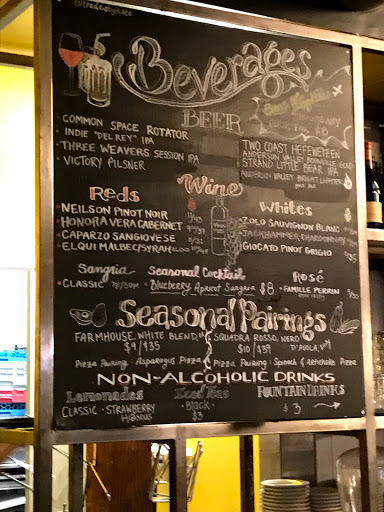 Beverages
BEER
• COMMON SPACE ROTATOR
• INDIE "DEL REY" IPA
• THREE WEAVERS SESSION IPA
• VICTORY PILSNER
TWO COAST HEFEWEIZEN
ANDERSON VALLEY BOONVILLE GOLD
STRAND LITTLE BEAR IPA
ANDERSON VALLEY BRIGHT LIGHTER
Reds
Wine
Whites
• NEILSON PINOT NOIR
• HONORA VERA CABERNET
• CAPARZO SANGIOVESE
• ELQUI MALBEC/SYRAH BLEND
• ZOLO SAUVIGNON BLANC
• JACKHAMMER CHARDONNAY
• GIOCATO PINOT GRIGIO
Sangria
Seasonal Cocktail
Rosé
• CLASSIC
• Blueberry Apricot Sangria $8
• FAMILLE PERRIN
Seasonal Pairings
FARMHOUSE WHITE BLEND
$9/$35
SQUADRA ROSSO, NERO D'AVOLA
$10/$39
Pizza Pairing: Asparagus Pizza
Pizza Pairing: Spinach & Artichoke Pizza
NON-ALCOHOLIC DRINKS
Lemonades
Iced Teas
FOUNTAIN DRINKS
CLASSIC • STRAWBERRY
HIBISCUS
• BLACK •
$3
$3